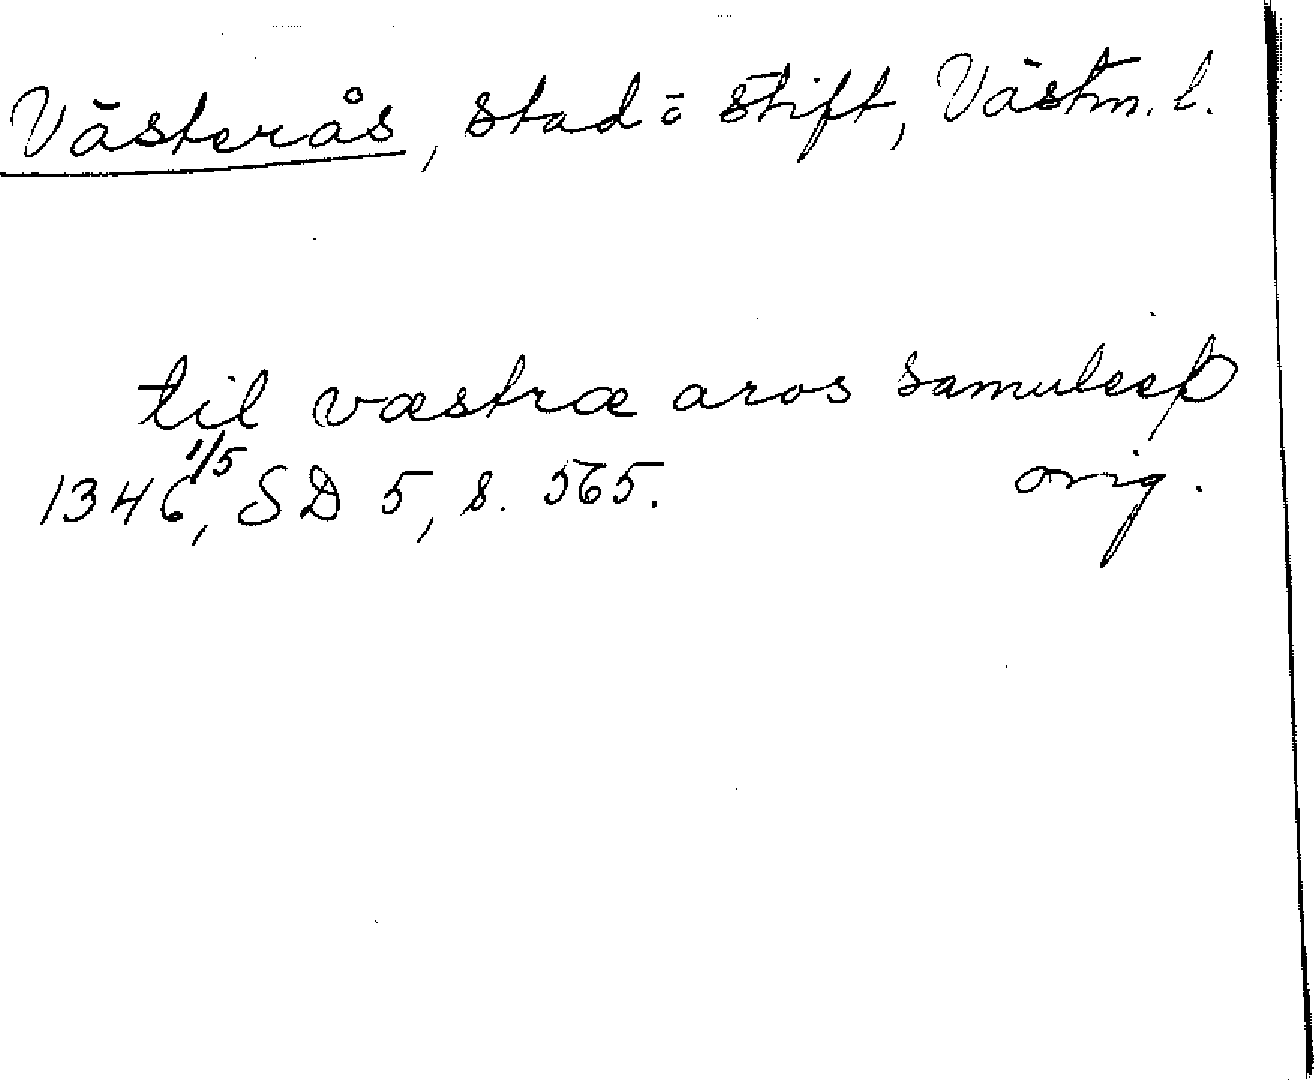 Västerås, stad o stift, Västm. l.
til væstræ aros samuleeþ
1346 1/5, SD 5, s. 565. orig.